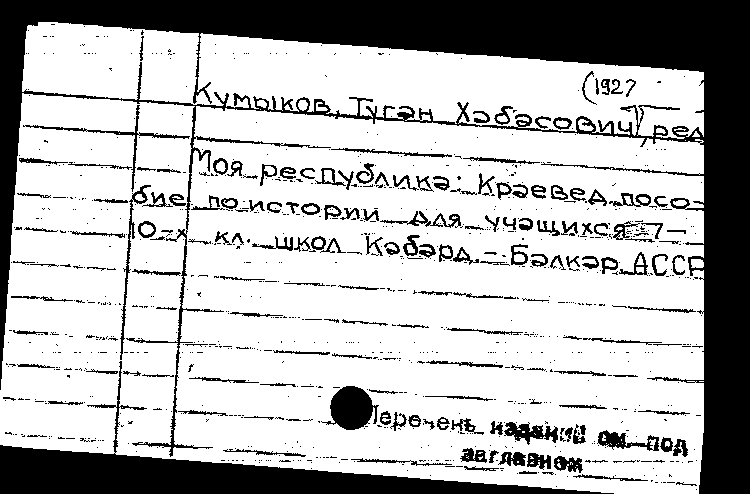 (1927
Кумыков, Туган Хабасович), ред
Моя республика: Краевед. посо-
бие по истории для учащихся 7-
10-х кл. школ Кабард.-Балкар. АССР
Перечень изданий см. под
заглавием